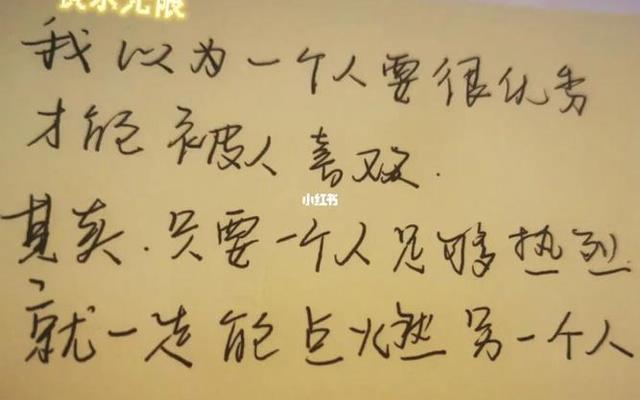 我以为一个人要很优秀
才能被人喜欢.
小红书
其实.只要一个人足够热烈
就一定能点燃另一个人